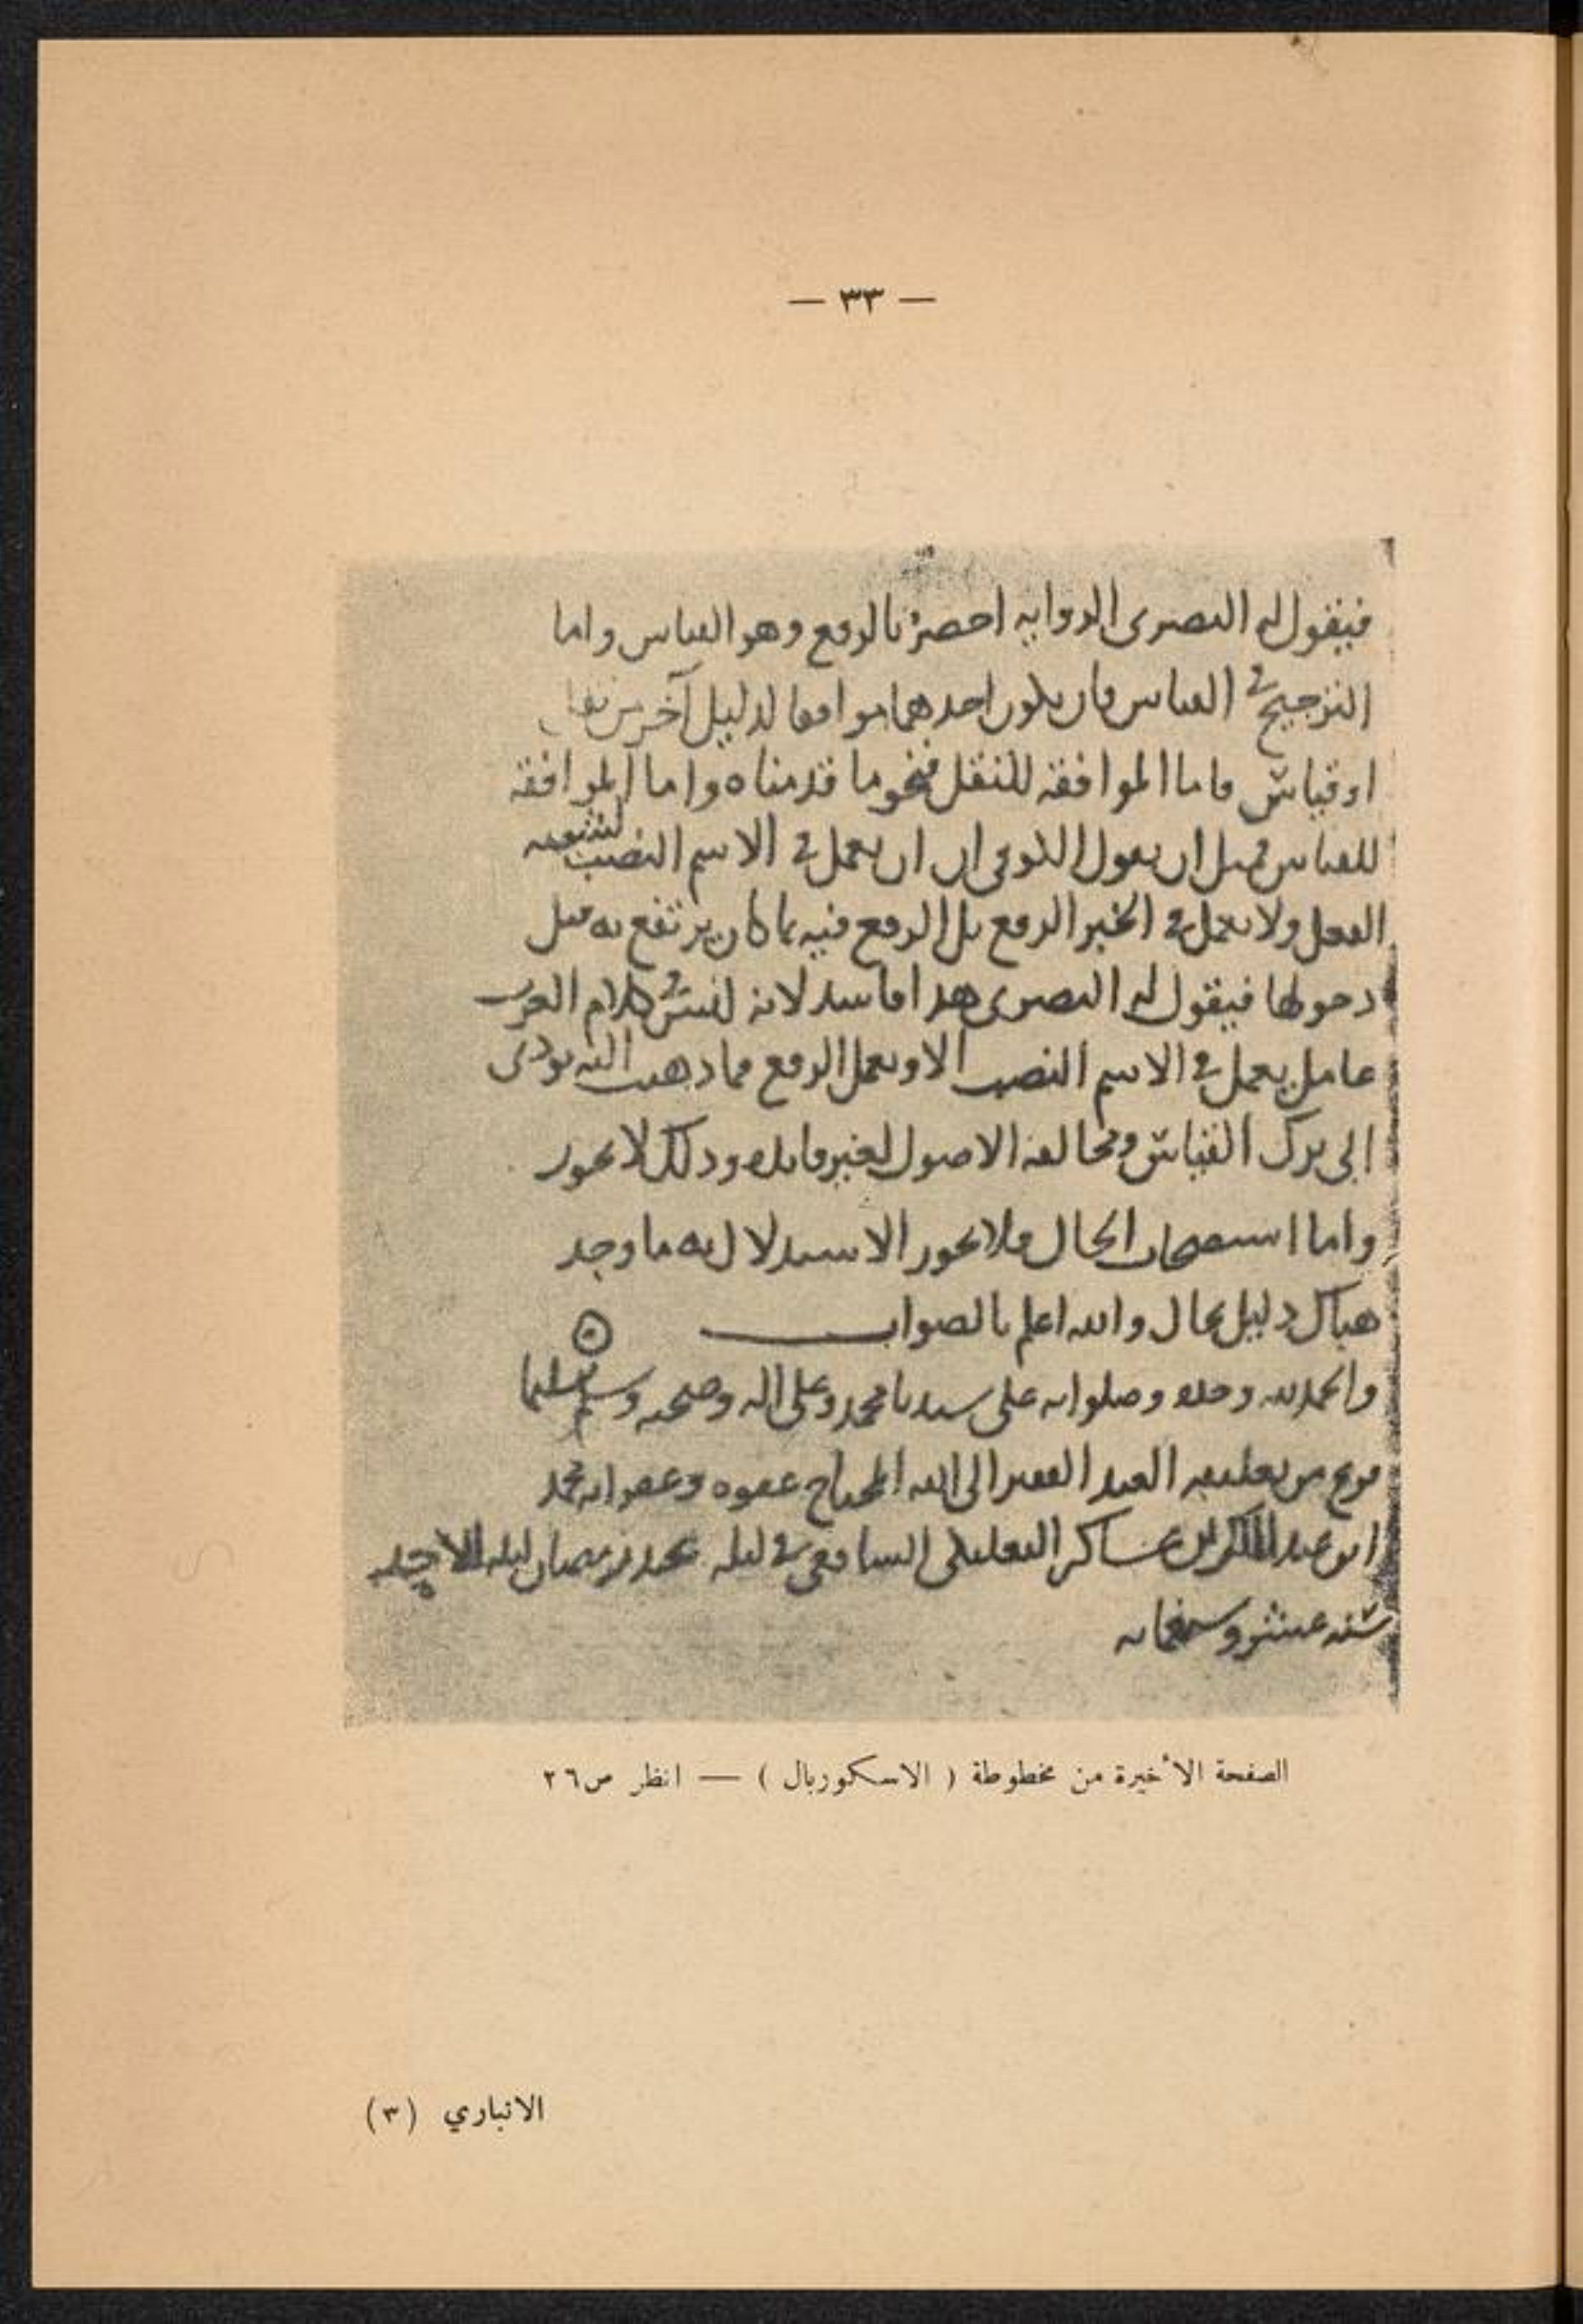 — ٣٣ —
فيقول له البصرى الروايه بالرفع وهو القياس واما
الترجيح فى القياس فان يكون احدهما موافقا لدليل آخر من نقل
او قياس فاما الموافقه للنقل فنحو ما قدمناه واما الموافقه
للقياس فمثل ان يقول الكوفى ان ان يعمل فى الاسم النصب لشبه
الفعل ولا يعمل فى الخبر الرفع بل الرفع فيه بما كان يرتفع به قبل
دخولها فيقول له البصرى هذا فاسد لانه ليس فى كلام العرب
عامل يعمل فى الاسم النصب الا ويعمل الرفع فما ذهبت اليه يودى
الى ترك القياس ومخالفه الاصول لغير فائده وذلك لا يجوز
واما استصحاب الحال فلا يجوز الاستدلال به ما وجد
هناك دليل بحال والله اعلم بالصواب
والحمد لله وحده وصلواته على سيدنا محمد وعلى اله وصحبه وسلم تسليما
فرغ من تعليقه العبد الفقير الى الله المحتاج عفوه وغفرانه محمد
ابن عبد الملك بن عساكر الشافعى فى ليله رمضان ليله الاحد
سنه عشر وسبعمايه
الصفحة الأخيرة من مخطوطة ( الاسكوريال ) — انظر ص٢٦
الانباري (٣)